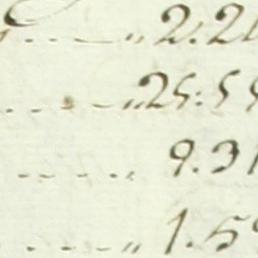 „ 2.2
„ 25:5
9.3
„ 1.5